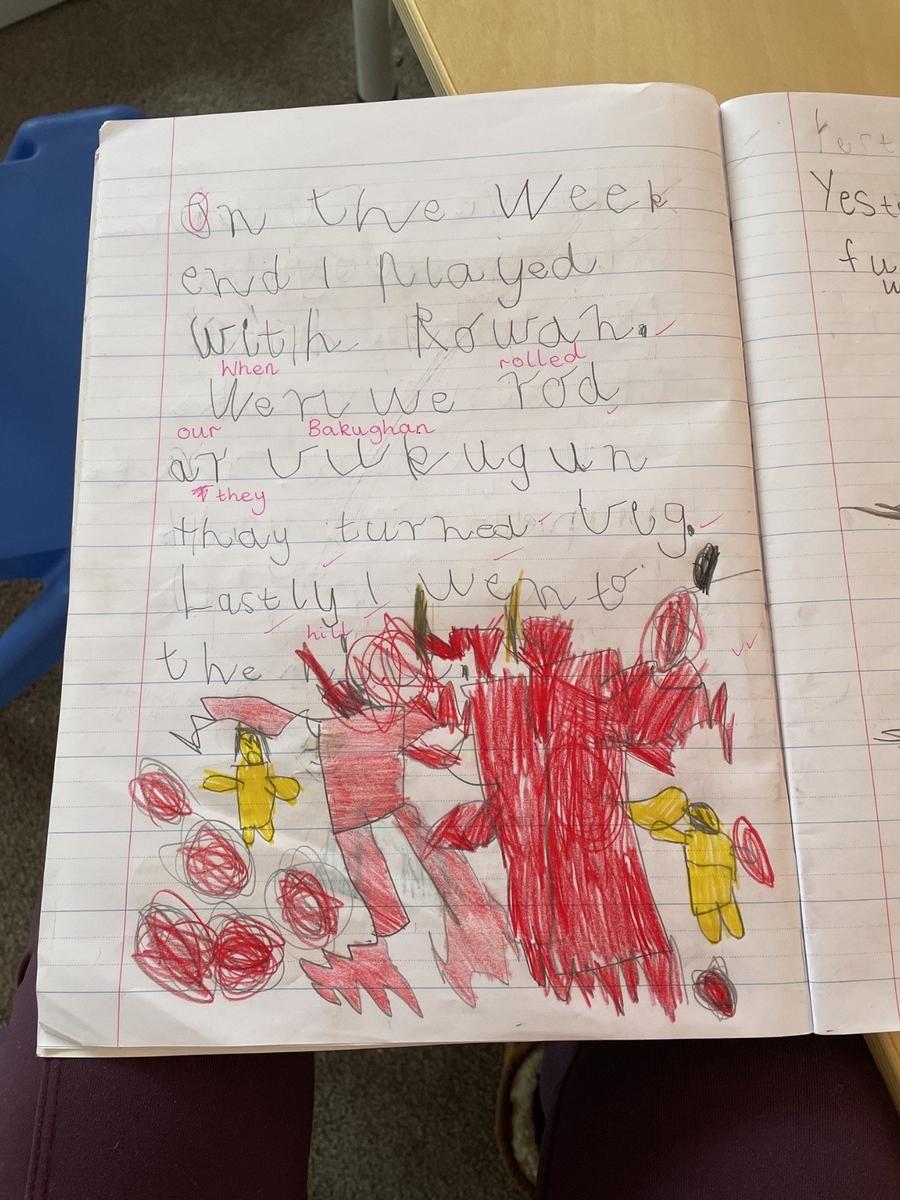 On the Week
end I Played
with Rowan.
When rolled
Wen we rod
our Bakughan
ar vukugun
they
thay turned big.
Lastly I wen to
hill
the
Yest
Yest
fu
w